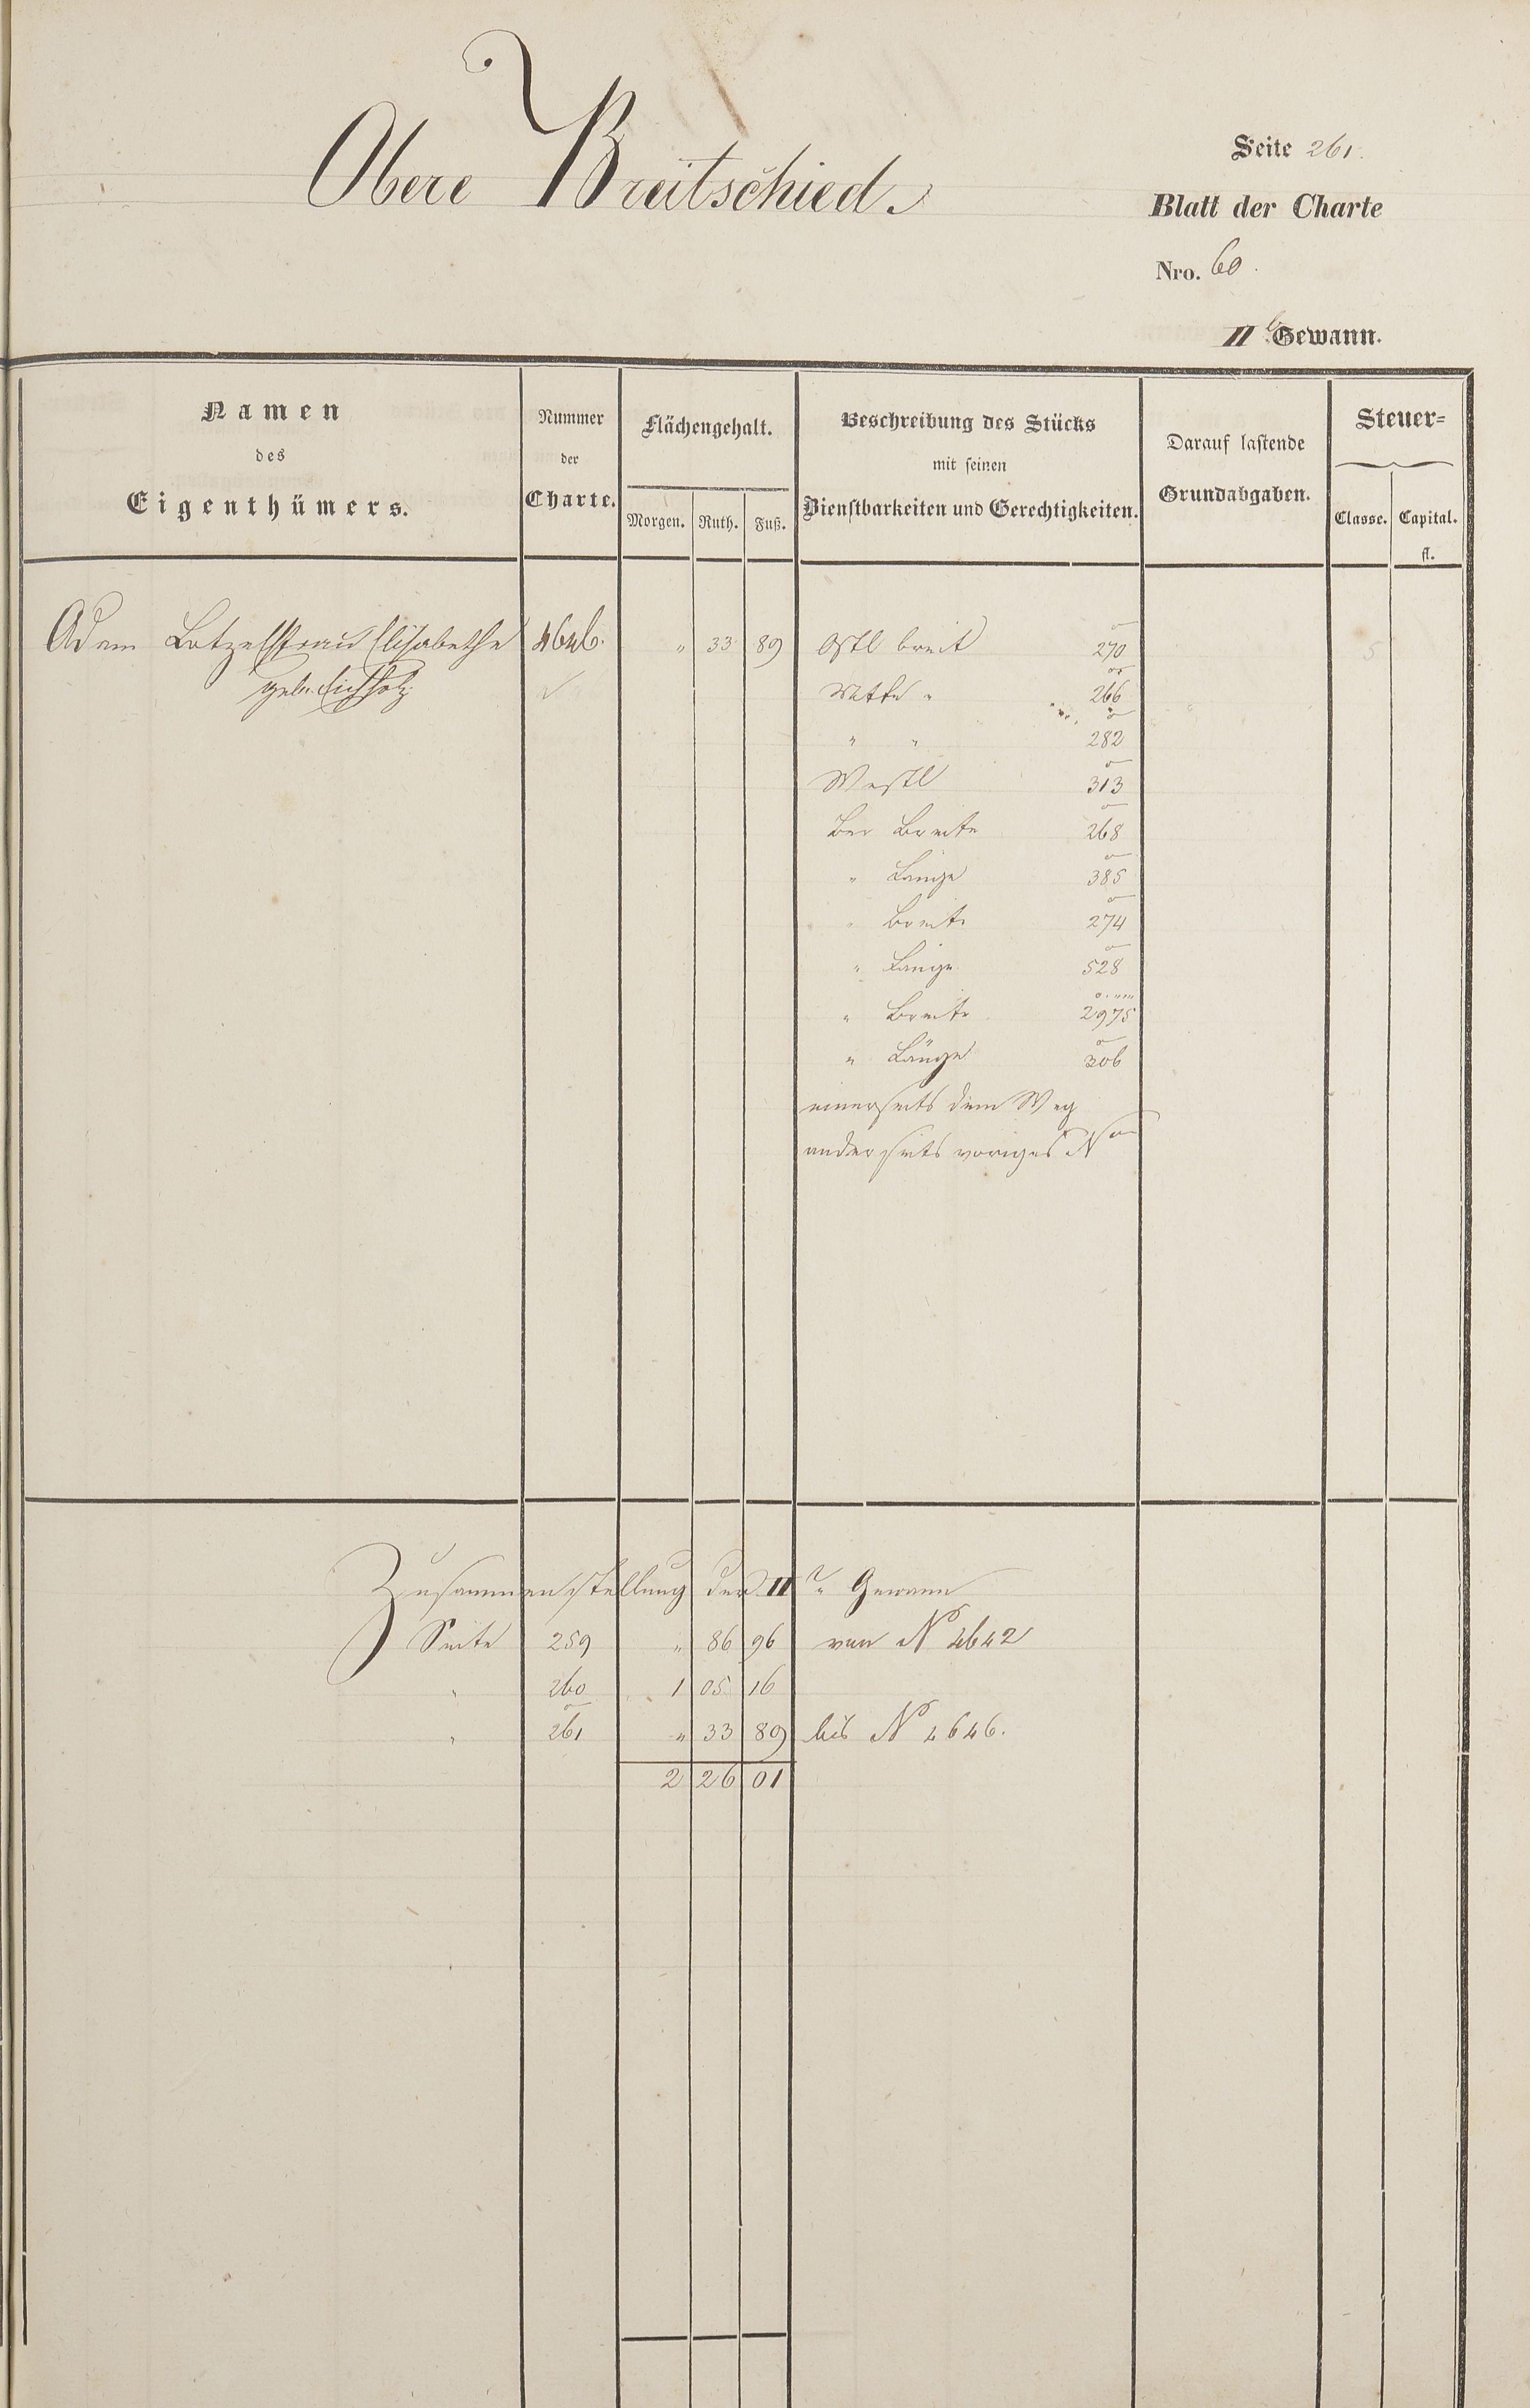 Obere Breitschied.
Seite 261.
Blatt der Charte
Nro. 60.
II Gewann.
Namen
des
Eigenthümers.
Nummer
der
Charte.
Flächengehalt.
Morgen. Ruth. Fuß.
Beschreibung des Stücks
mit seinen
Dienstbarkeiten und Gerechtigkeiten.
Darauf lastende
Grundabgaben.
Steuer-
Classe. Capital.
fl.
Adam Elisabethe 4646. " 33 89 Östl breit 270 5
geb. Eichholz Mitte " 266
" " 282
Westl 313
Der Breite 268
" Länge 385
" Breite 274
" Länge 528
" Breite 2975
" Länge 306
einerseits dem Weg
anderseits voriges No
Zusammenstellung der II Gewann
Seite 259 " 86 96 von No 4642
" 260 1 05 16
" 261 " 33 89 bis No 4646.
2 26 01